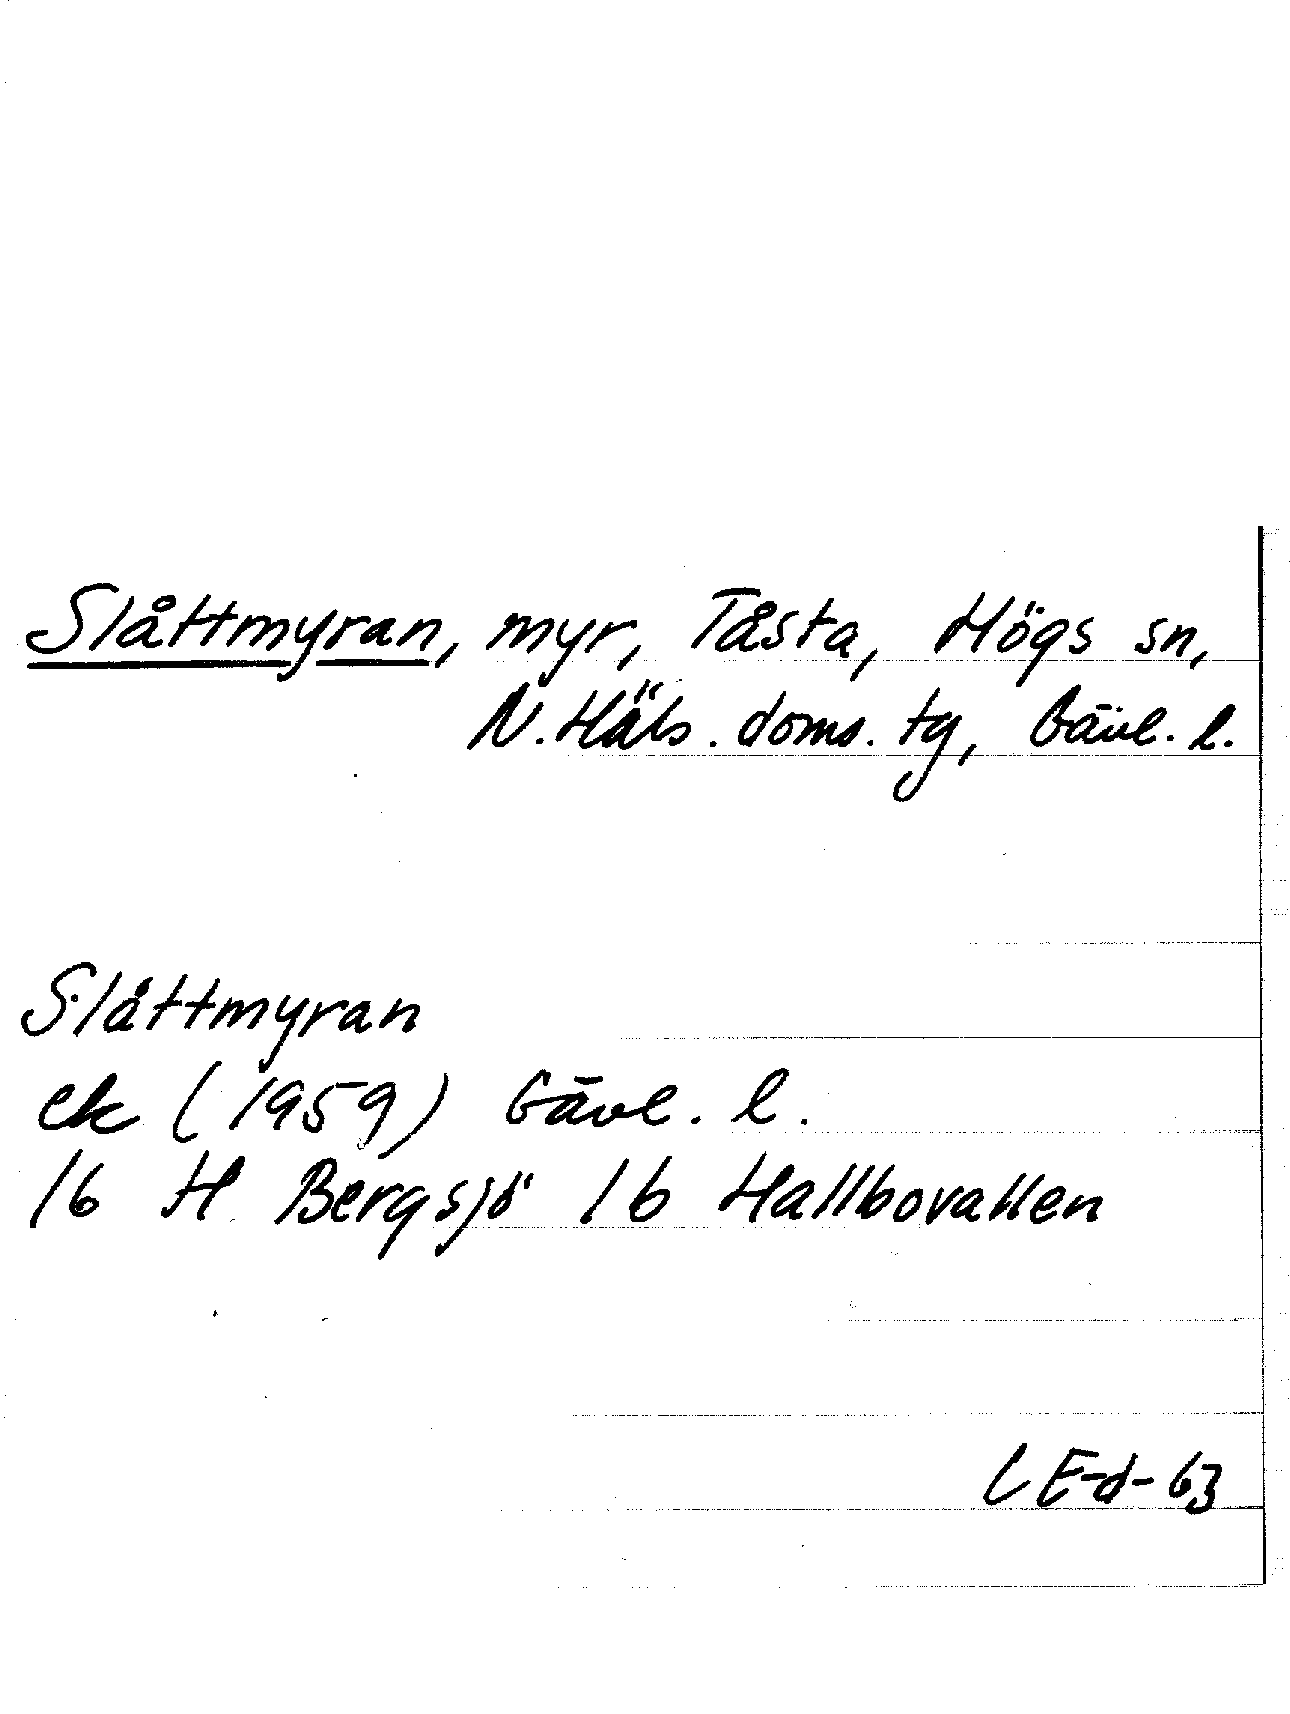 Slåttmyran, myr, Tåsta, Högs sn,
N. Häls. doms. tg, Gävl. l.
Slåttmyran
ek (1959) Gävl. l.
16 H Bergsjö 1b Hallbovallen
LE-d-63